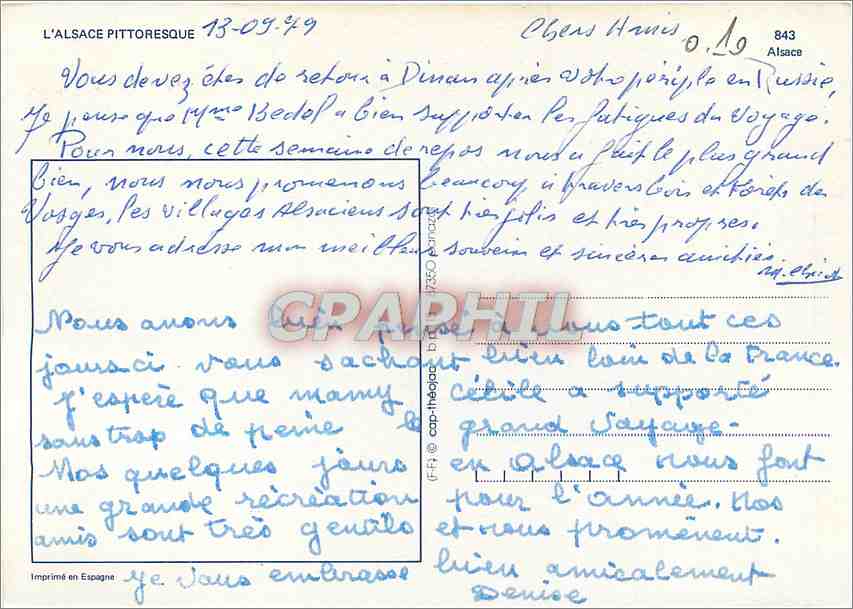 L'ALSACE PITTORESQUE 13-09-79 Chers Amis 0.10 843
Alsace
Vous devez être de retour à Dinan après votre périple en Russie,
Je pense que Mme Bedel a bien supporter les fatigues du voyage.
Pour nous, cette semaine de repos nous a fait le plus grand
bien, nous nous promenons beaucoup à travers bois et forêts des
Vosges, les villages Alsaciens sont très jolis et très propres.
Je vous adresse mon meilleur souvenir et sincères amitiés.
Nous avons bien pensé à vous tout ces
jours ci vous sachant bien loin de la France.
J'espère que mamy Cécile a supporté
sans trop de peine le grand voyage-
Mos quelques jours en Alsace nous font
une grande récréation pour l'année. Nos
amis sont très gentils et nous promènent.
Je vous embrasse bien amicalement
Denise
(F-F) © cap-théojac 87350 panazol
Imprimé en Espagne
CPARPHIL